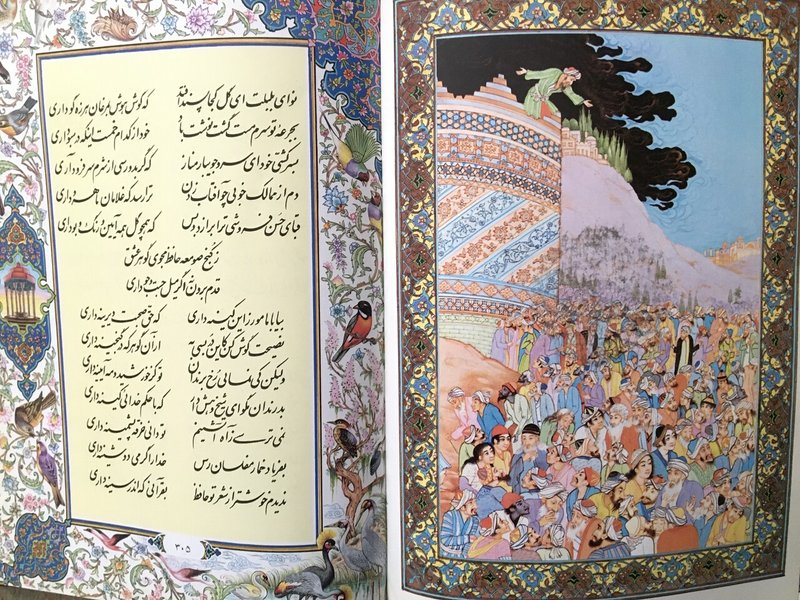 نوای بلبلت ای گل کجا پسند افتد که گوش هوش بمرغان هرزه گو داری
بجرعه تو سرم مست گشت نوشت باد خود از کدام خمست اینکه در سبو داری
بسرکشی خود ای سرو جویبار مناز که گر بدو رسی از شرم سر فرود آری
دم از ممالک خوبی چو آفتاب زدن ترا رسد که غلامان ماهرو داری
قبای حسن فروشی ترا برازد و بس که همچو گل همه آیین رنگ و بو داری
ز کنج صومعه حافظ مجوی گوهر عشق
قدم برون نه اگر میل جست و جو داری
بیا با ما مورز این کینه داری که حق صحبت دیرینه داری
نصیحت گوش کن کاین در بسی به از آن گوهر که در گنجینه داری
ولیکن کی نمائی رخ برندان تو کز خورشید و مه آیینه داری
بد رندان مگو ای شیخ و هش دار که با حکم خدائی کینه داری
نمی ترسی ز آه آتشینم تو دانی خرقه پشمینه داری
بفریاد خمار مفلسان رس خدا را گر می دوشینه داری
ندیدم خوشتر از شعر تو حافظ بقرآنی که اندر سینه داری
۳۰۵